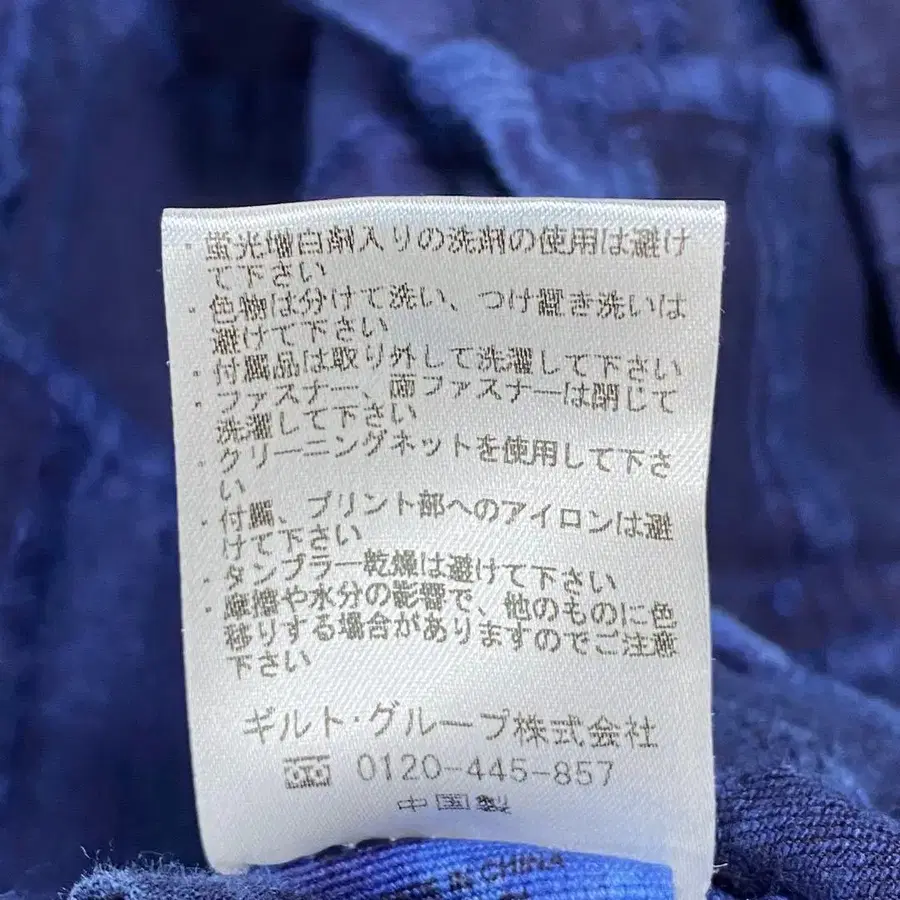 ・蛍光増白剤入りの洗剤の使用は避け
て下さい
・色物は分けて洗い、つけ置き洗いは
避けて下さい
・付属品は取り外して洗濯して下さい
・ファスナー、面ファスナーは閉じて
洗濯して下さい
・クリーニングネットを使用して下さ
い
・付属、プリント部へのアイロンは避
けて下さい
・タンブラー乾燥は避けて下さい
・摩擦や水分の影響で、他のものに色
移りする場合がありますのでご注意
下さい
ギルト・グループ株式会社
0120-445-857
中国製
IN CHINA